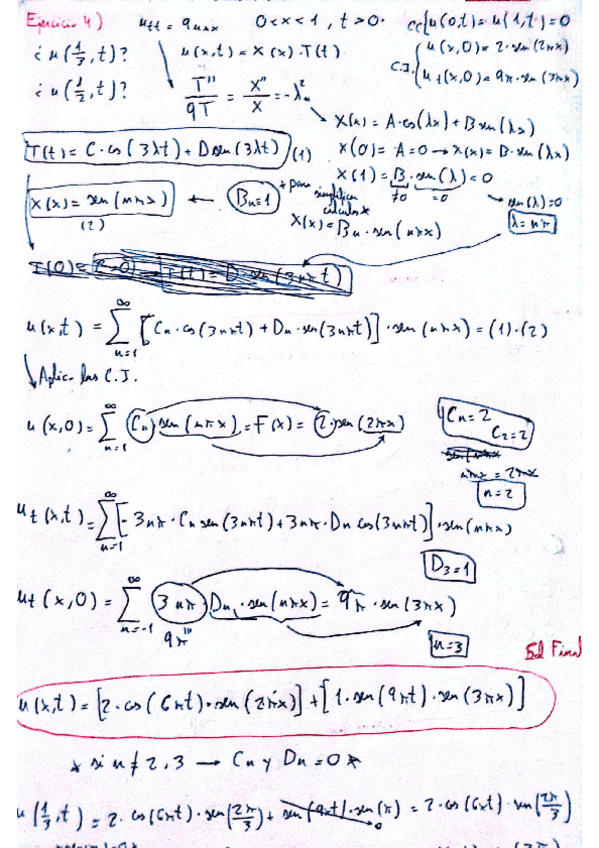 Ejercicio 4) u_tt = 9u_xx 0<x<1, t>0. CC{u(0,t)=u(1,t)=0
¿u(1/3,t)? u(x,t)=X(x).T(t) C.I.{u(x,0)=2·sen(2πx)
¿u(1/2,t)? u_t(x,0)=9π·sen(3πx)
T''/9T = X''/X = -λ²_n
X(x)=A·cos(λx)+Bsen(λx)
T(t)=C·cos(3λt)+Dsen(3λt) (1) X(0)=A=0→X(x)=B·sen(λx)
X(1)=B·sen(λ)=0
≠0 =0 → sen(λ)=0
X(x)=sen(nπx) ← B_n=1 * para simplificar cálculos * λ=nπ
(2) X(x)=B_n·sen(nπx)
T(0)=C=0 → T(t)=D·sen(3nπt)
u(x,t) = ∞ Σ n=1 [C_n·cos(3nπt)+D_n·sen(3nπt)]·sen(nπx)=(1)·(2)
Aplico las C.I.
u(x,0)= ∞ Σ n=1 C_n sen(nπx)=F(x)=2·sen(2πx) C_n=2
C_2=2
nπx=2πx
n=2
u_t(x,t)= ∞ Σ n=1 [-3nπ·C_n sen(3nπt)+3nπ·D_n cos(3nπt)]·sen(nπx)
D_3=1
u_t(x,0)= ∞ Σ n=1 3nπ·D_n·sen(nπx)=9π·sen(3πx)
9π n=3
Sol Final
u(x,t)=[2·cos(6πt)·sen(2πx)]+[1·sen(9πt)·sen(3πx)]
* si n≠2,3 → C_n y D_n=0 *
u(1/3,t)=2·cos(6πt)·sen(2π/3)+sen(9πt)·sen(π)=2·cos(6πt)·sen(2π/3)
0